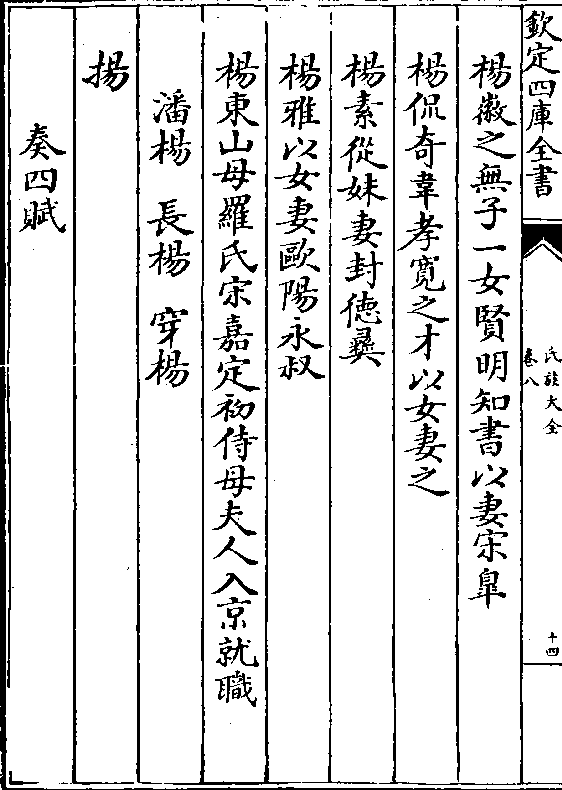 欽定四庫全書
氏族大全
卷八
十四
楊徽之無子一女賢明知書以妻宋臯
楊侃奇韋孝寛之才以女妻之
楊素從妹妻封徳彞
楊雅以女妻歐陽永叔
楊東山母羅氏宋嘉定初侍母夫人入京就職
潘楊　長楊　穿楊
揚
奏四賦